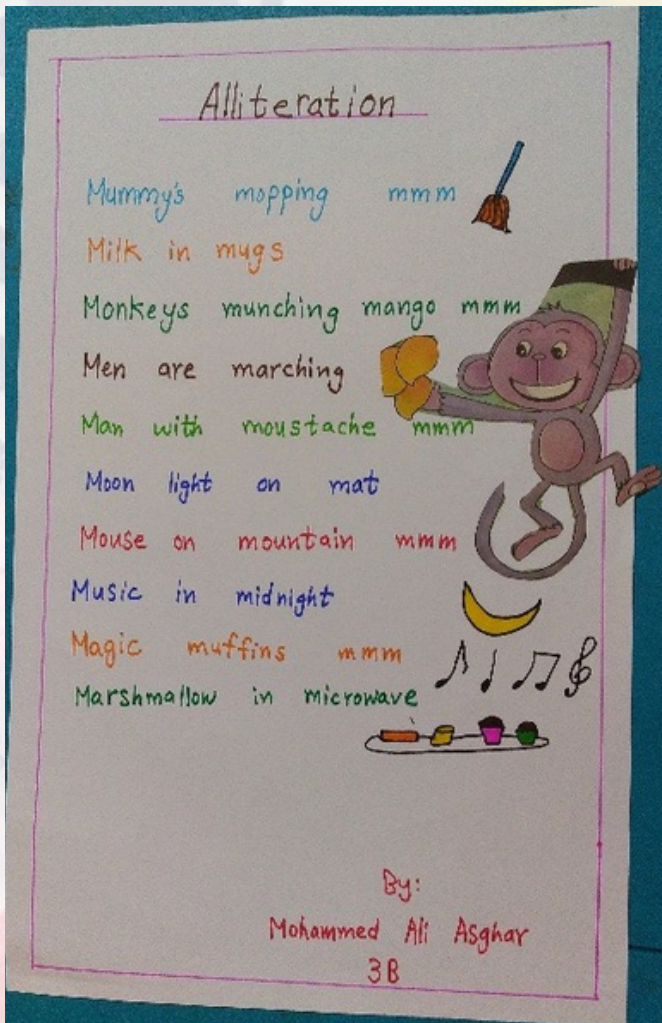 Alliteration
Mummy's mopping mmm
Milk in mugs
Monkeys munching mango mmm
Men are marching
Man with moustache mmm
Moon light on mat
Mouse on mountain mmm
Music in midnight
Magic muffins mmm
Marshmallow in microwave
By:
Mohammed Ali Asghar
3B